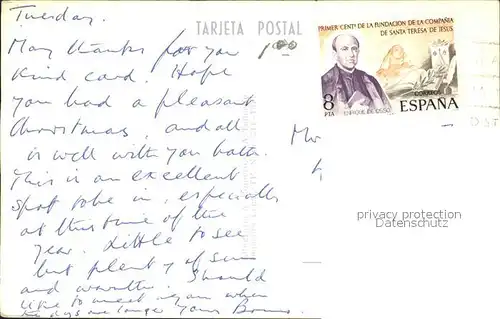 Tuesday.
TARJETA POSTAL
Many thanks for you
kind card. Hope
you had a pleasant
Christmas, and all
is well with you both.
This is an excellent
spot to be in, especially
at this time of the
year. Little to see
but plenty of sun
and warmth. Should
like to meet again when
the days are longer Yours
PRIMER CENTº DE LA FUNDACION DE LA COMPAÑIA
DE SANTA TERESA DE JESUS
8
PTA
ENRIQUE DE OSSO
CORREOS
ESPAÑA
privacy protection
Datenschutz